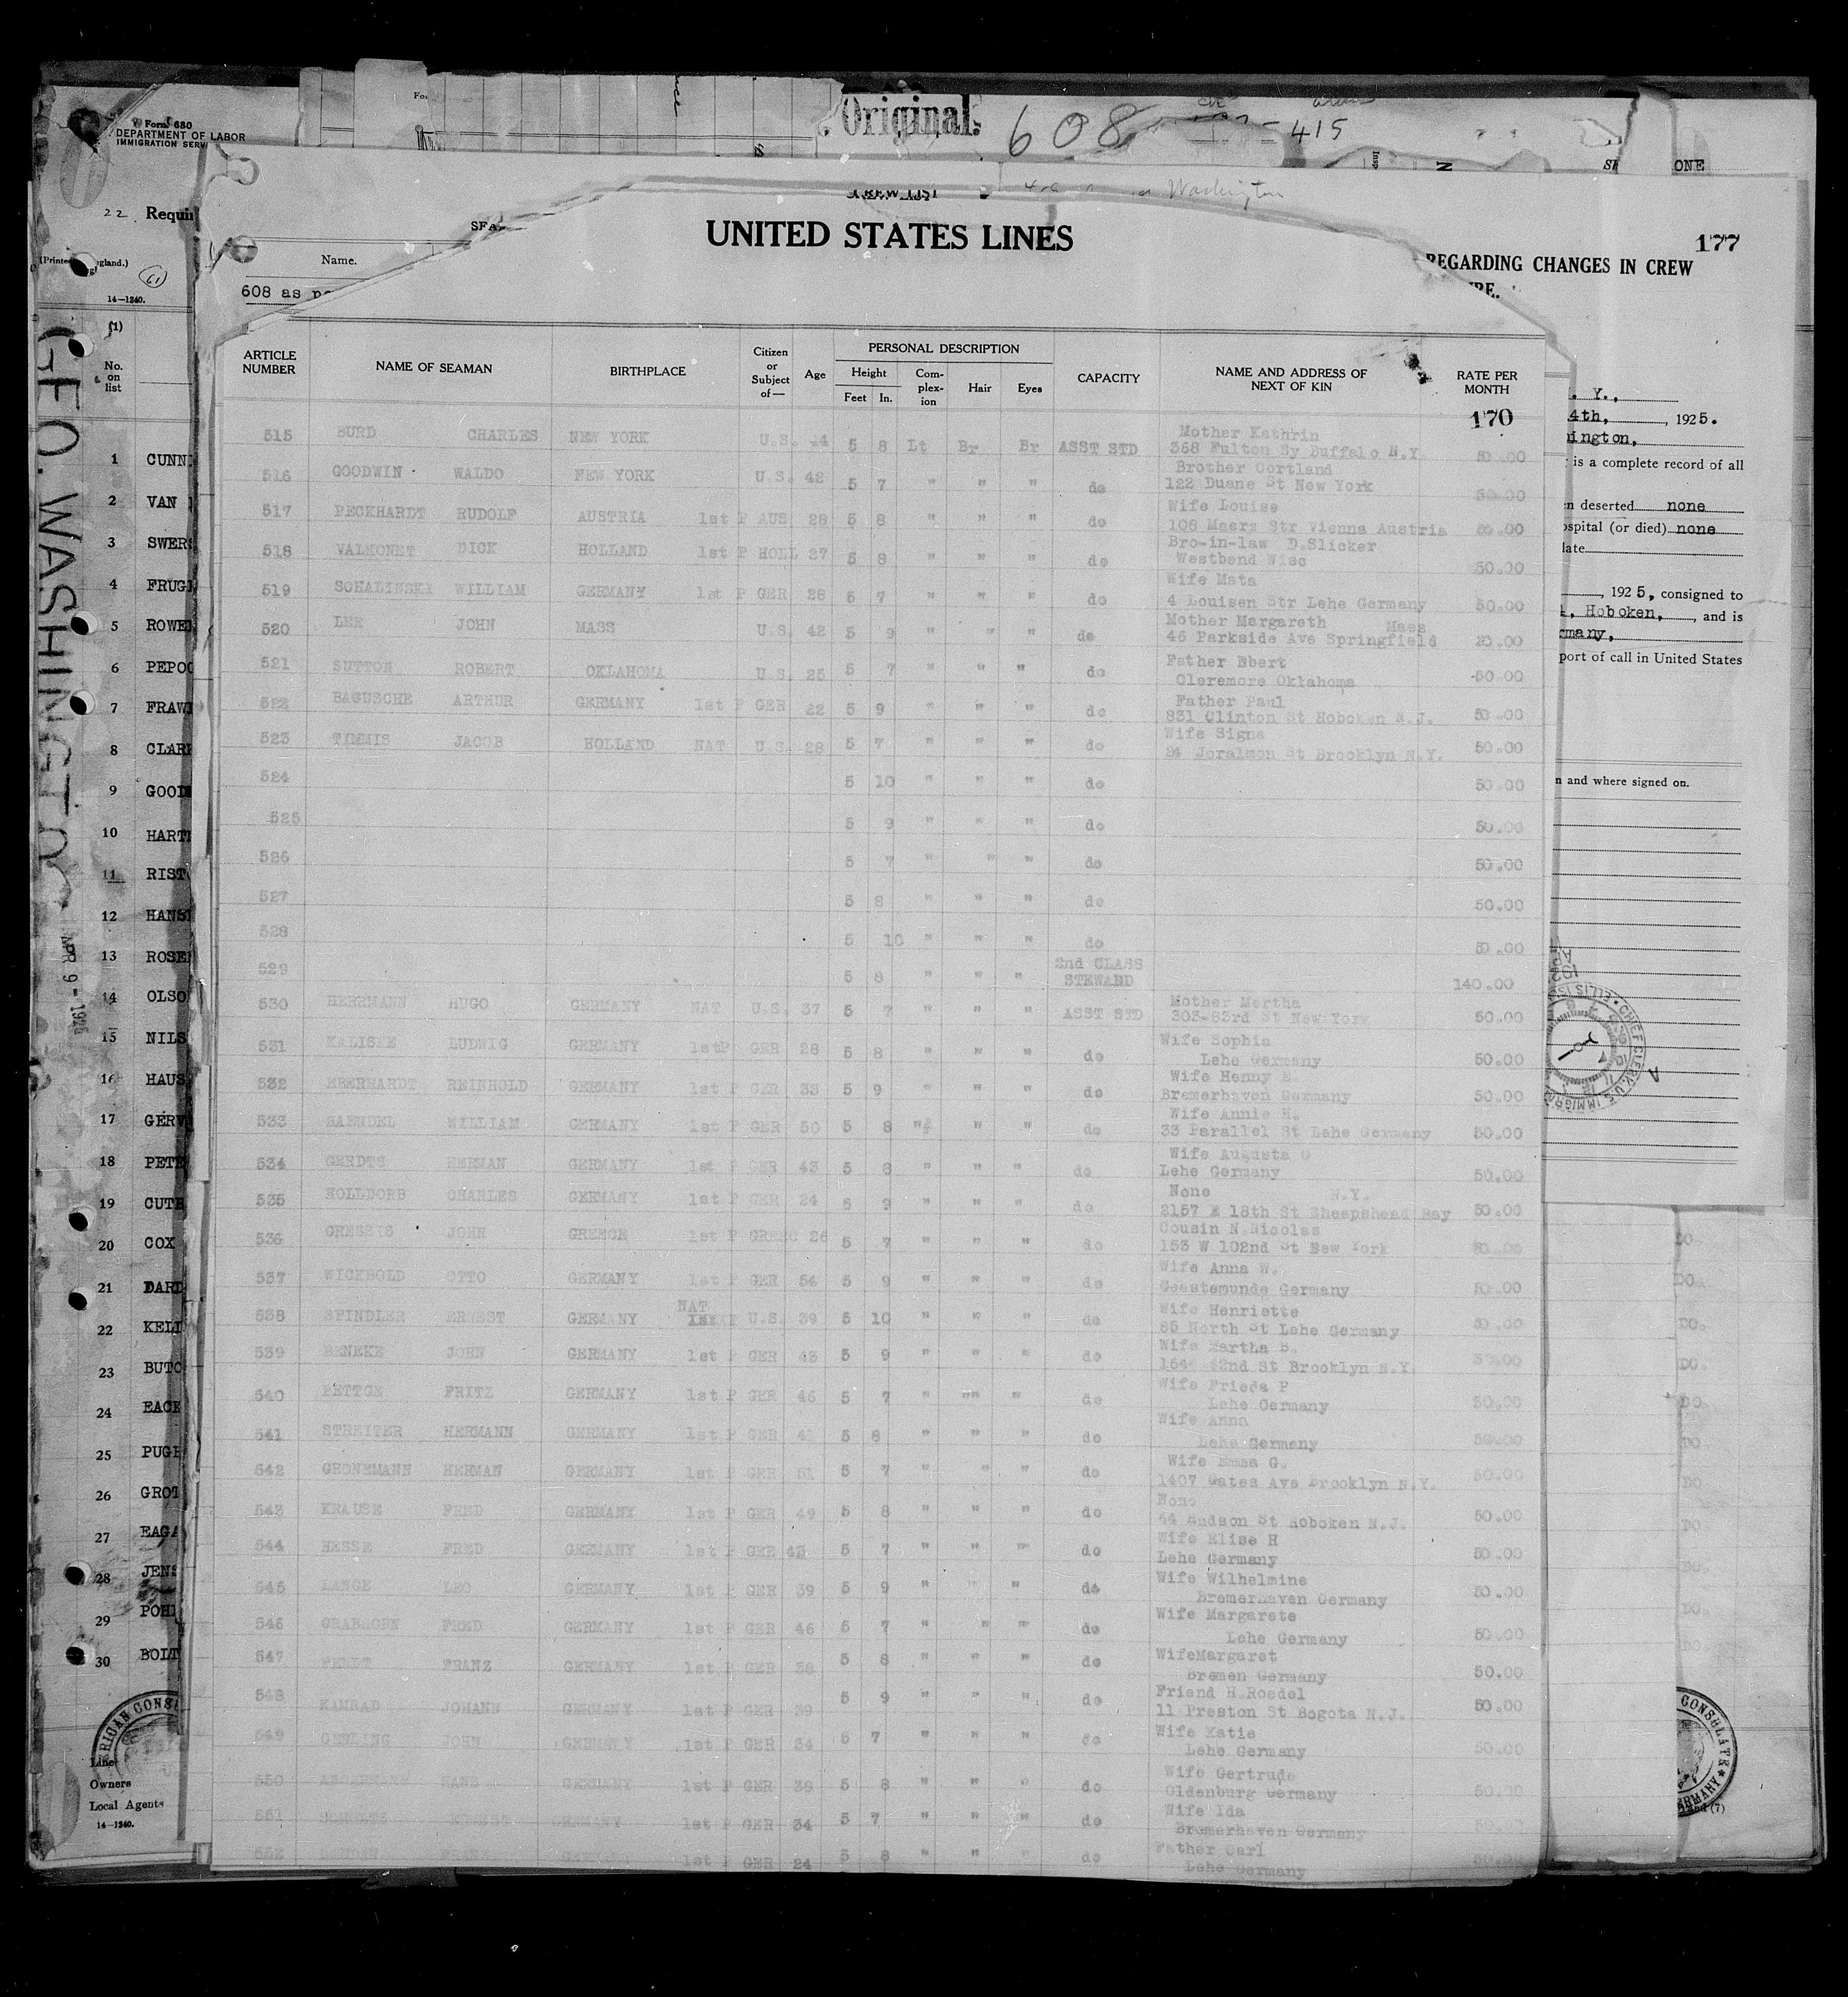 Form 680
DEPARTMENT OF LABOR
IMMIGRATION SERV
Original.
608
415
ONE
22
Requi
Washington
CREW LIST
UNITED STATES LINES
177
REGARDING CHANGES IN CREW
Name.
608 as pe
14-1240.
(1)
No. on list
GEO. WASHINGTON
APR 9 - 1925
ARTICLE NUMBER NAME OF SEAMAN BIRTHPLACE Citizen or Subject of— Age PERSONAL DESCRIPTION Height Feet In. Complexion Hair Eyes CAPACITY NAME AND ADDRESS OF NEXT OF KIN RATE PER MONTH
170
515 BURD CHARLES NEW YORK U.S. 5 8 Lt Br Br ASST STD Mother Kathrin 368 Fulton Sy Buffalo N.Y. 50.00
516 GOODWIN WALDO NEW YORK U.S. 42 5 7 " " " do Brother Cortland 122 Duane St New York 50.00
517 PECKHARDT RUDOLF AUSTRIA 1st P AUS 28 5 8 " " " do Wife Louise 109 Maerz Str Vienna Austria 50.00
518 VALMONET DICK HOLLAND 1st P HOLL 27 5 8 " " " do Bro-in-law D.Slicker Westbend Wisc 50.00
519 SCHALINSKY WILLIAM GERMANY 1st P GER 28 5 7 " " " do Wife Meta 4 Louisen Str Lehe Germany 50.00
520 LEE JOHN MASS U.S. 42 5 9 " " " do Mother Margareth Mass 46 Parkside Ave Springfield 50.00
521 SUTTON ROBERT OKLAHOMA U.S. 25 5 7 " " " do Father Ebert Claremore Oklahoma 50.00
522 BAGUSCHE ARTHUR GERMANY 1st P GER 22 5 9 " " " do Father Paul 831 Clinton St Hoboken N.J. 50.00
523 TIMMIS JACOB HOLLAND NAT U.S. 28 5 7 " " " do Wife Signa 24 Joralmon St Brooklyn N.Y. 50.00
524 5 10 " " " do 50.00
525 5 9 " " " do 50.00
526 5 7 " " " do 50.00
527 5 8 " " " do 50.00
528 5 10 " " " do 50.00
529 5 8 " " " 2nd CLASS STEWADD 140.00
530 HERRMANN HUGO GERMANY NAT U.S. 37 5 7 " " " ASST STD Mother Martha 303-83rd St New York 50.00
531 KALISKE LUDWIG GERMANY 1stP GER 28 5 8 " " " do Wife Sophia Lehe Germany 50.00
532 EBERHARDT REINHOLD GERMANY 1st P GER 33 5 9 " " " do Wife Henny E. Bremerhaven Germany 50.00
533 HAENDEL WILLIAM GERMANY 1st P GER 50 5 8 " " " do Wife Annie H. 33 Parallel St Lehe Germany 50.00
534 GERDTS HERMAN GERMANY 1st P GER 43 5 8 " " " do Wife Augusta G Lehe Germany 50.00
535 HOLLDORB CHARLES GERMANY 1st P GER 24 5 9 " " " do None N.Y. 2157 E 18th St Sheepshead Bay 50.00
536 GRESSIS JOHN GREECE 1st P GREEC 26 5 7 " " " do Cousin N.Nicolas 153 W 102nd St New York 50.00
537 WICKBOLD OTTO GERMANY 1st P GER 54 5 9 " " " do Wife Anna W. Geestemunde Germany 50.00
538 SPINDLER ERNEST GERMANY NAT U.S. 39 5 10 " " " do Wife Henriette 85 North St Lehe Germany 50.00
539 BENEKE JOHN GERMANY 1st P GER 43 5 9 " " " do Wife Martha B. 62nd St Brooklyn N.Y. 50.00
540 PETTGE FRITZ GERMANY 1st P GER 46 5 7 " "" " do Wife Frieda P Lehe Germany 50.00
541 STREITER HERMANN GERMANY 1st P GER 41 5 8 " " " do Wife Anna Lehe Germany 50.00
542 GRONEMANN HERMAN GERMANY 1st P GER 51 5 7 " " " do Wife Emma G. 1407 Gates Ave Brooklyn N.Y. 50.00
543 KRAUSE FRED GERMANY 1st P GER 49 5 8 " " " do None 64 Hudson St Hoboken N.J. 50.00
544 HESSE FRED GERMANY 1st P GER 43 5 7 " " " do Wife Elise H Lehe Germany 50.00
545 LANGE LEO GERMANY 1st P GER 39 5 9 " " " do Wife Wilhelmine Bremerhaven Germany 50.00
546 GRABHORN FRED GERMANY 1st P GER 46 5 7 " " " do Wife Margarete Lehe Germany 50.00
547 FRANZ GERMANY 1st P GER 38 5 8 " " " do WifeMargaret Bremen Germany 50.00
548 KAMRAD JOHANN GERMANY 1st P GER 39 5 9 " " " do Friend H.Roedel 11 Preston St Bogota N.J. 50.00
549 GEHLING JOHN GERMANY 1st P GER 34 5 7 " " " do Wife Katie Lehe Germany 50.00
550 HANS GERMANY 1st P GER 38 5 8 " " " do Wife Gertrude Oldenburg Germany 50.00
551 SCHULTZ ERNEST GERMANY 1st P GER 34 5 7 " " " do Wife Ida Bremerhaven Germany 50.00
552 1st P GER 24 5 8 " " " do Father Carl Lehe Germany 50.00
1 CUNN
2 VAN
3 SWERS
4 FRUG
5 ROWE
6 PEPO
7 FRAW
8 CLAR
9 GOOD
10 HART
11 RIST
12 HANS
13 ROSE
14 OLSO
15 NILS
16 HAUS
17 GERV
18 PETE
19 CUTB
20 COX
21 DARD
22 KELL
23 BUTC
24 EACK
25 PUGH
26 GROT
27 EAGA
28 JENS
29 POHL
30 BOLT
RICAN CONSU
Line
Owners
Local Agents
14-1240.
. Y.,
4th, , 1925.
ington,
is a complete record of all
n deserted none
ospital (or died) none
late
, 1925, consigned to
, Hoboken, , and is
rmany,
port of call in United States
n and where signed on.
CONSULATE
DO.
DO.
DO.
DO.
DO.
DO
DO
DO.
DO.
DO.
DO.